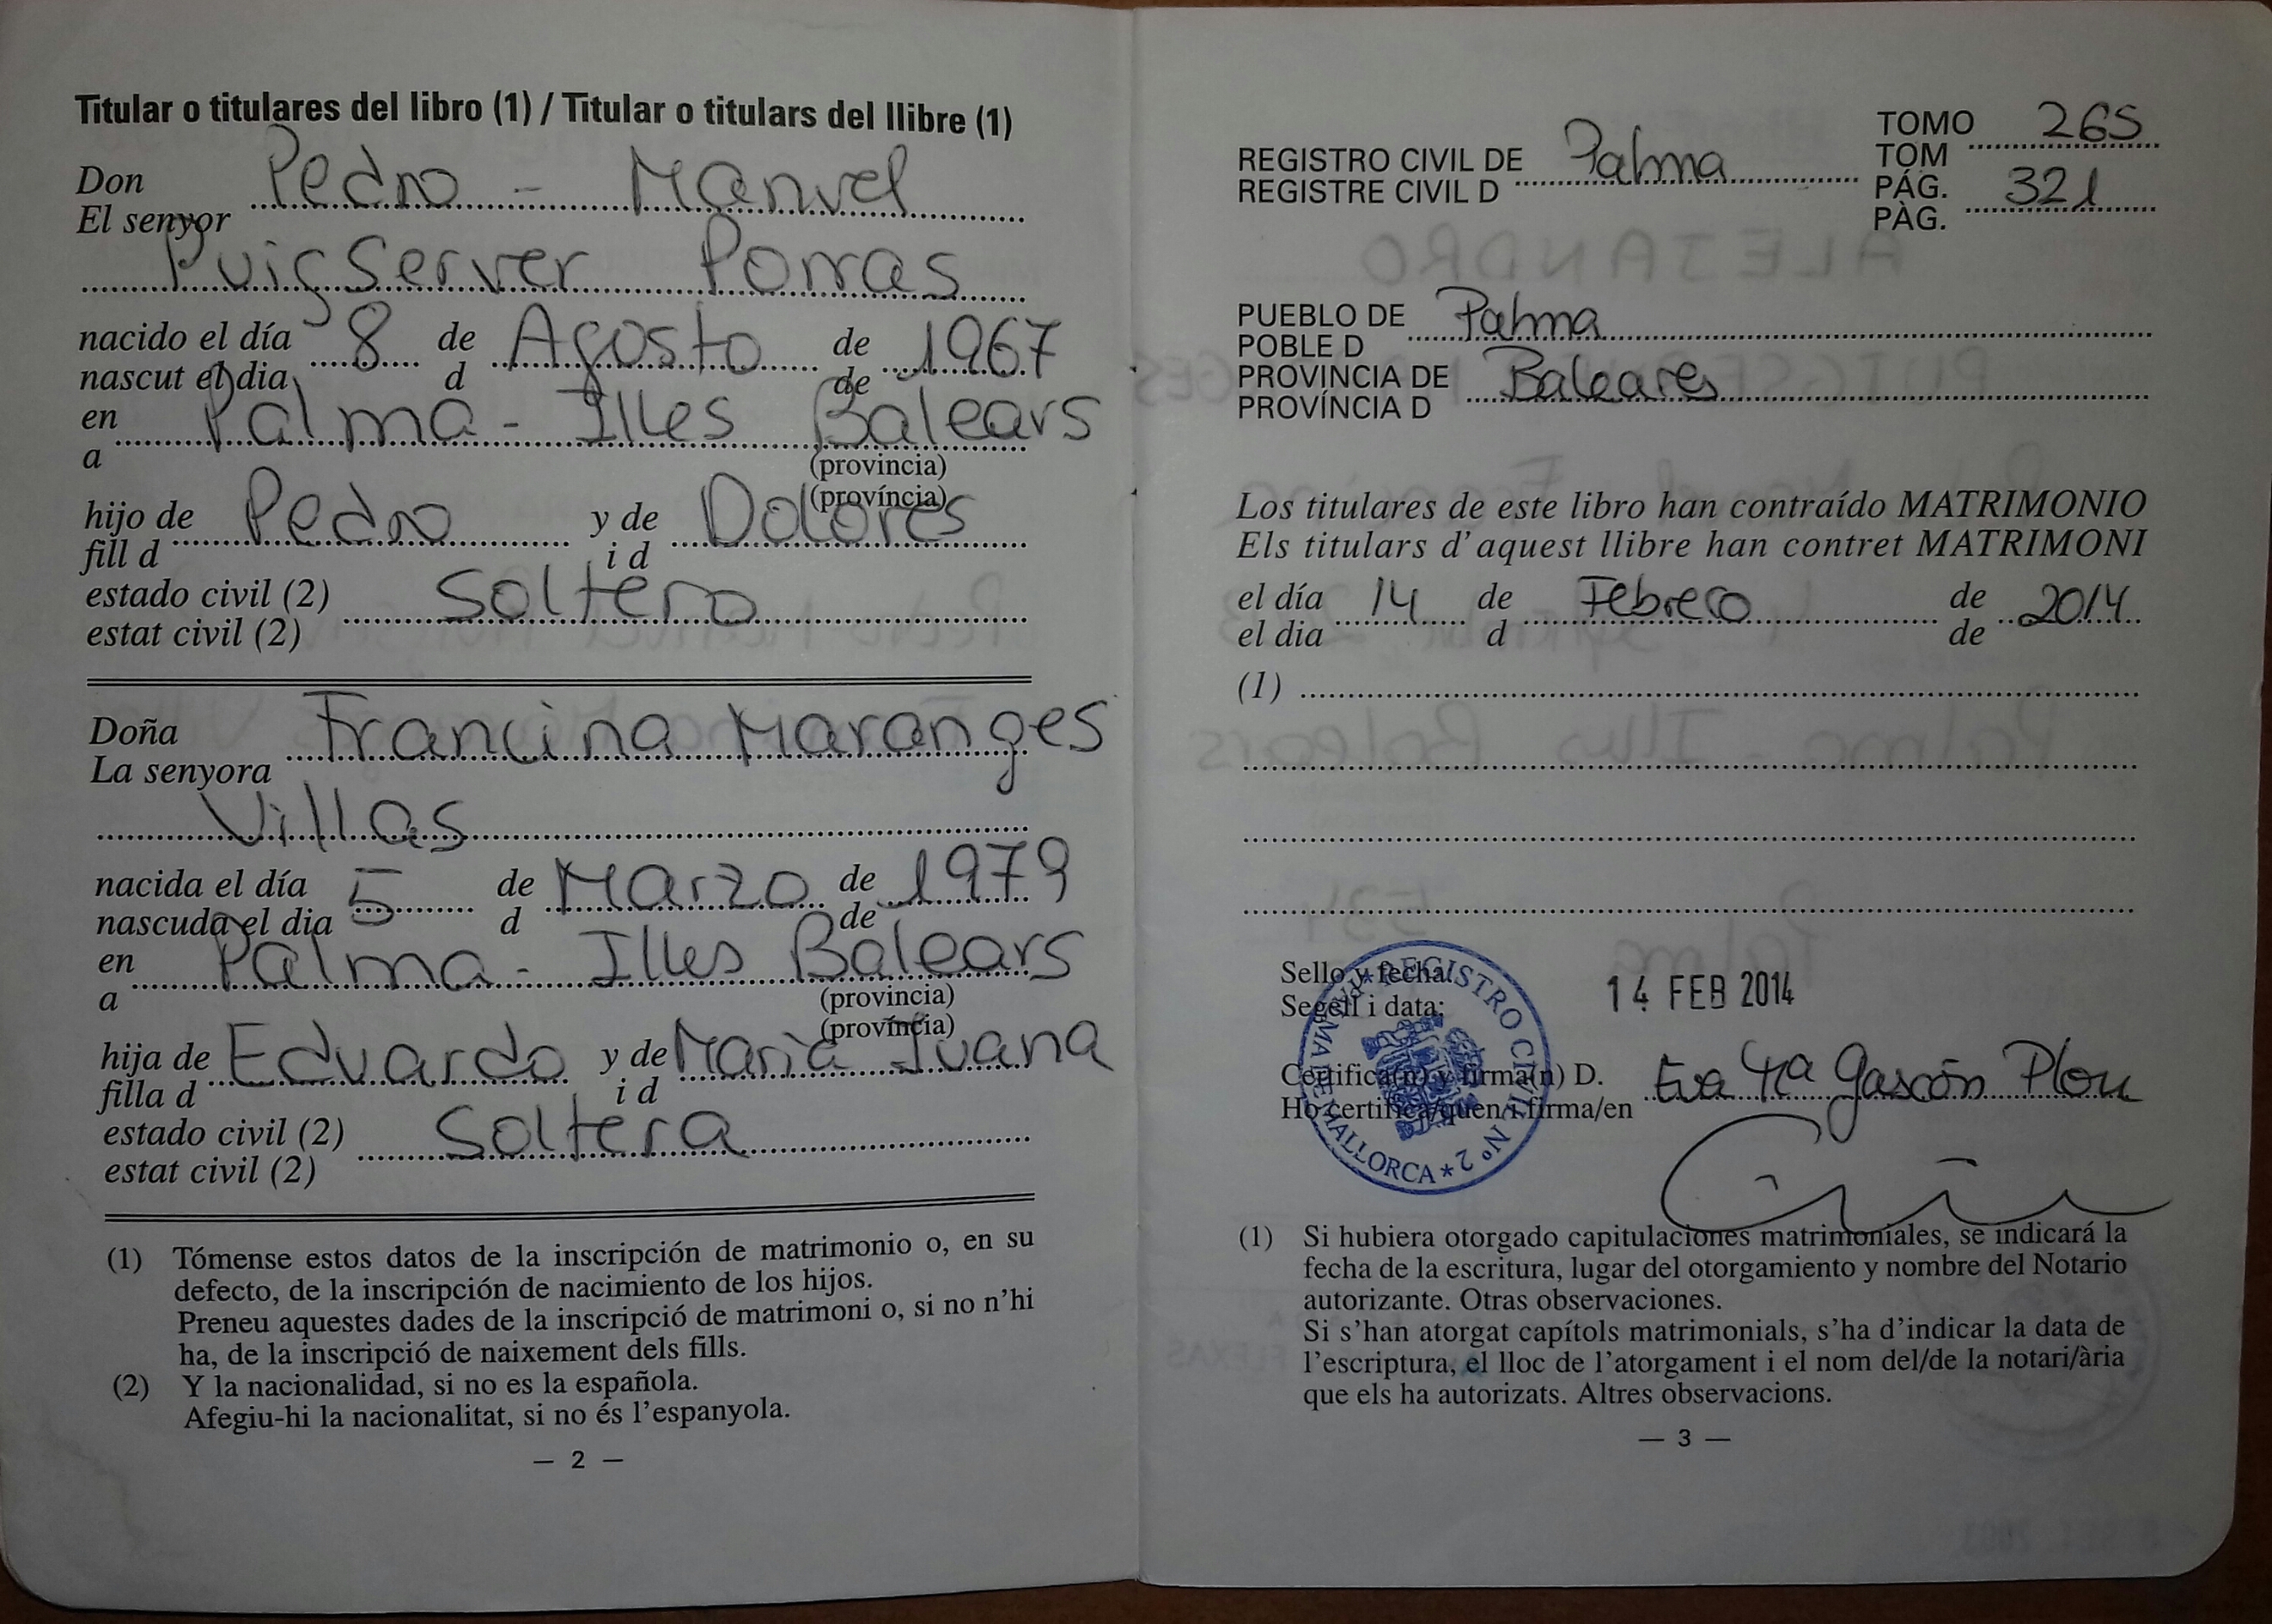 Titular o titulares del libro (1) / Titular o titulars del llibre (1)
Don Pedro - Manuel
El senyor
Puigserver Porras
nacido el día 8 de Agosto de 1967
nascut el dia d de
en Palma - Illes Balears
a (provincia)
(província)
hijo de Pedro y de Dolores
fill d i d
estado civil (2) Soltero
estat civil (2)
Doña Francina Maranges
La senyora
Villas
nacida el día 5 de Marzo de 1979
nascuda el dia d de
en Palma - Illes Balears
a (provincia)
(província)
hija de Eduardo y de Maria Juana
filla d i d
estado civil (2) Soltera
estat civil (2)
(1) Tómense estos datos de la inscripción de matrimonio o, en su
defecto, de la inscripción de nacimiento de los hijos.
Preneu aquestes dades de la inscripció de matrimoni o, si no n'hi
ha, de la inscripció de naixement dels fills.
(2) Y la nacionalidad, si no es la española.
Afegiu-hi la nacionalitat, si no és l'espanyola.
— 2 —
REGISTRO CIVIL DE Palma TOMO 265
REGISTRE CIVIL D TOM
PÁG. 321
PÀG.
PUEBLO DE Palma
POBLE D
PROVINCIA DE Baleares
PROVÍNCIA D
Los titulares de este libro han contraído MATRIMONIO
Els titulars d'aquest llibre han contret MATRIMONI
el día 14 de Febrero de 2014
el dia d de
(1)
Sello y fecha:
Segell i data:
14 FEB 2014
REGISTRO CIVIL Nº 2 * PALMA DE MALLORCA *
Certifica(n) y firma(n) D. Eva Mª Gascón Plou
Ho certifica/quen i firma/en
(1) Si hubiera otorgado capitulaciones matrimoniales, se indicará la
fecha de la escritura, lugar del otorgamiento y nombre del Notario
autorizante. Otras observaciones.
Si s'han atorgat capítols matrimonials, s'ha d'indicar la data de
l'escriptura, el lloc de l'atorgament i el nom del/de la notari/ària
que els ha autorizats. Altres observacions.
— 3 —